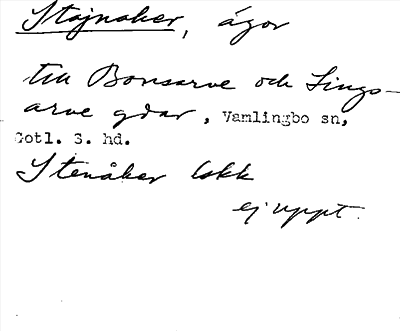 Stajnaker, ägor
till Bonsarve och Lings-
arve gdar, Vamlingbo sn,
Gotl. S. hd.
Stenåker lokk
ej uppt.